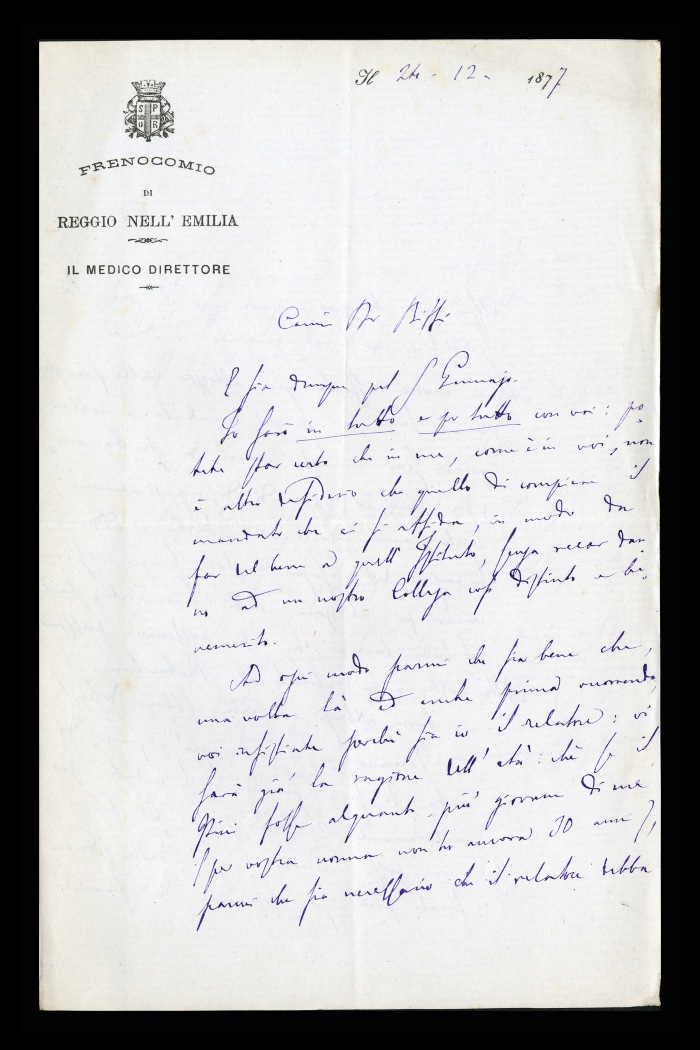 Il 24 - 12 - 1877
S P Q R
FRENOCOMIO
DI
REGGIO NELL' EMILIA
IL MEDICO DIRETTORE
Caris Dr Biffi
E sia dunque pel 5 Gennajo.
Io sarò in tutto e per tutto con voi: po
tete star certo che in me, come è in voi, non
è altro desiderio che quello di compiere il
mandato che ci si affida, in modo da
far del bene a quell' Istituto, senza recar dan
no ad un nostro Collega così distinto e be
nemerito.
Ad ogni modo parmi che sia bene che,
una volta là, ed anche prima occorrendo,
voi insistiate perché sia io il relatore: vi
sarà già la ragione dell' età: chè se il
Pini fosse alquanto più giovane di me
(per vostra norma non ho ancora 30 anni),
parmi che sia necessario che il relatore debba